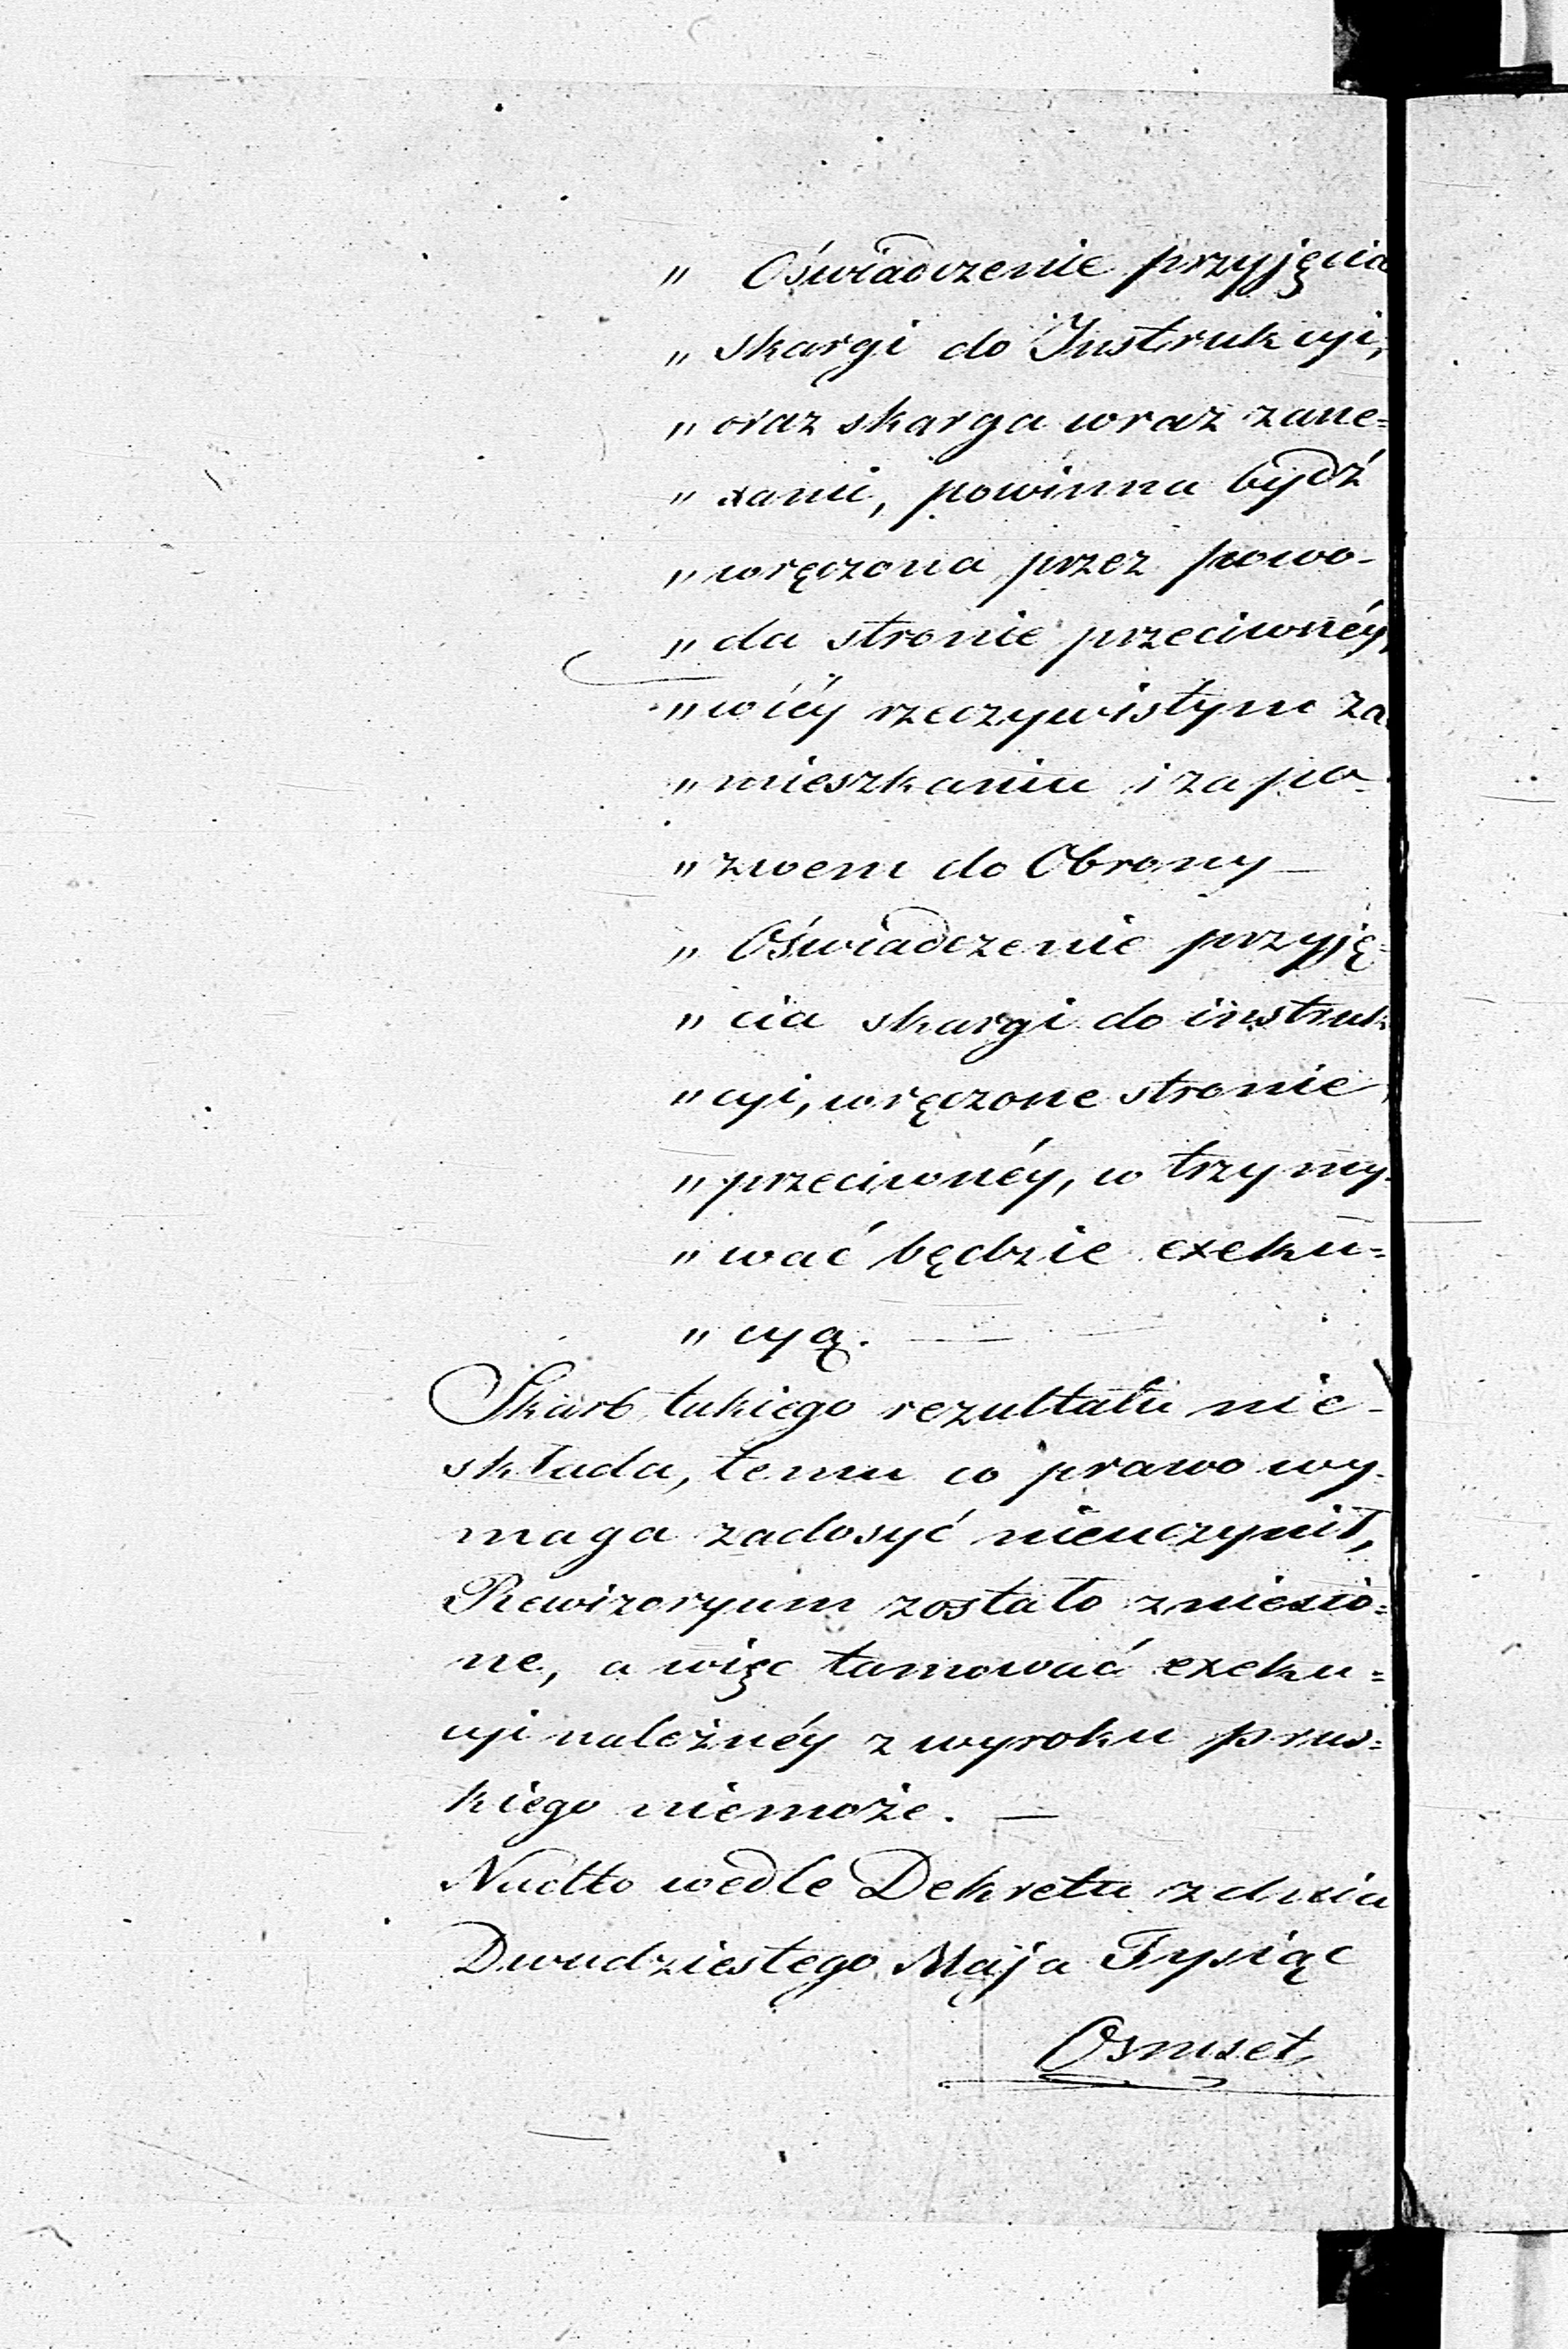 „ Oświadczenie przyjęcia
„ skargi do Instrukcyi,
„ oraz skarga wraz zane=
„ xami, powinna bydź
„ wręczona przez powo-
„ da stronie przeciwnéy,
„ w iéy rzeczywistym za
„ mieszkaniu i za po-
„ zwem do Obrony —
„ Oświadczenie przyję=
„ cia skargi do instruk
„ cyi, wręczone stronie
„ przeciwnéy, w trzymy-
„ wać będzie exeku=
„ cyą. —
Skarb takiego rezultatu nie-
składa, temu co prawo wy-
maga zadosyć nieuczynił,
Rewizoryum zostało zniesio=
ne, a więc tamować exeku=
cyi należnéy z wyroku prus=
kiego niemoże. —
Nadto wedle Dekretu z dnia
Dwudziestego Maja Tysiąc
Osmset